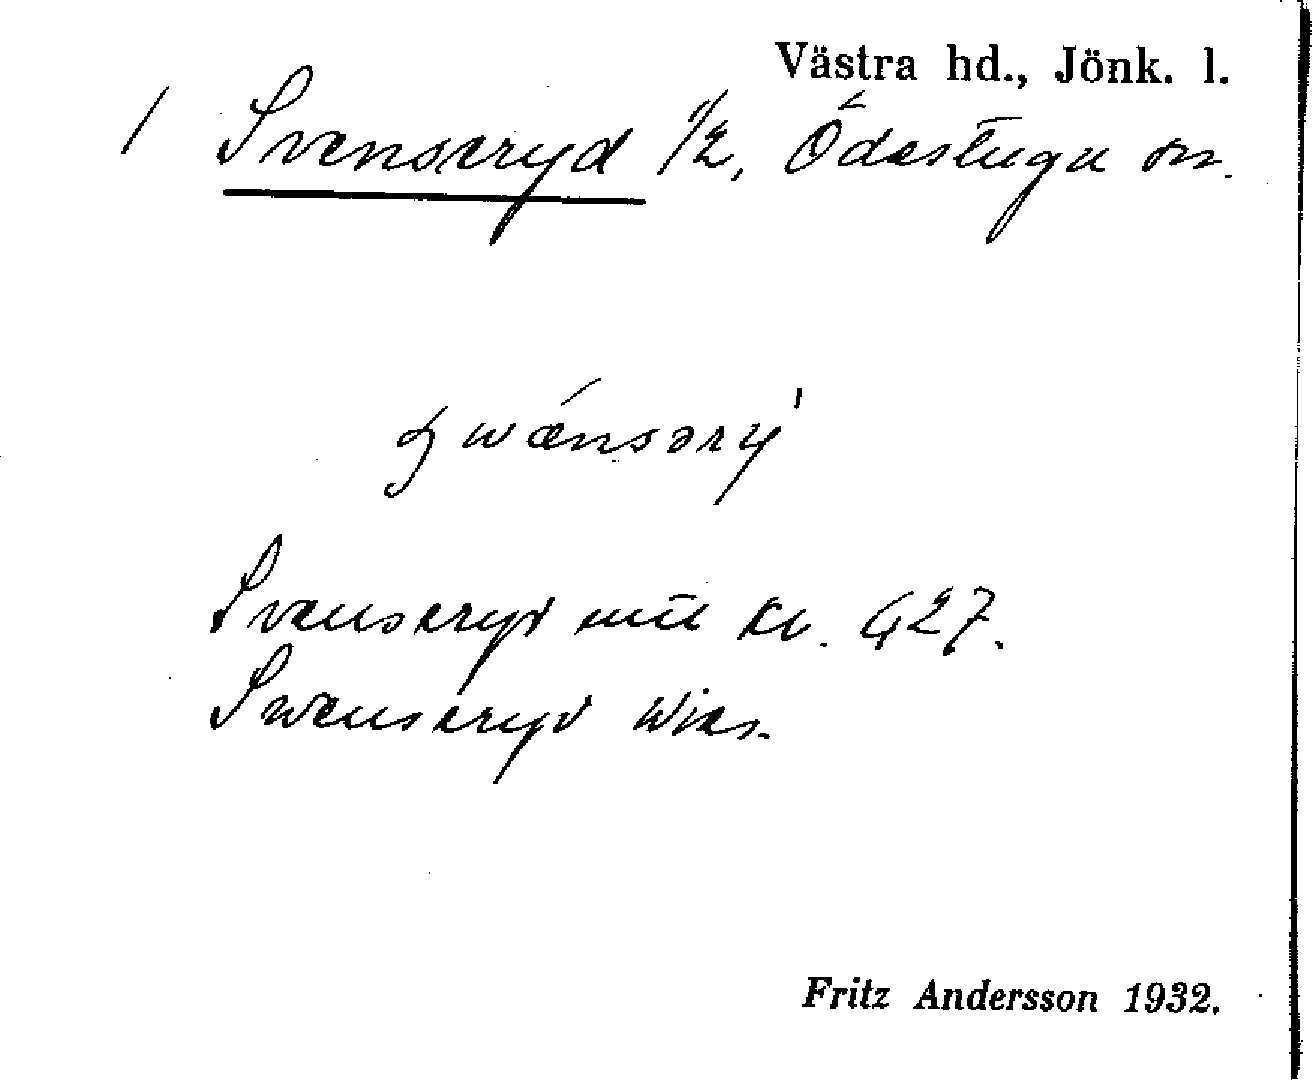 Västra hd., Jönk. l.
/ Svenseryd 1/2, Ödestugu sn.
swǽnsǝrý
Svenseryd mtl kv. 427.
Swenseryd Wies.
Fritz Andersson 1932.